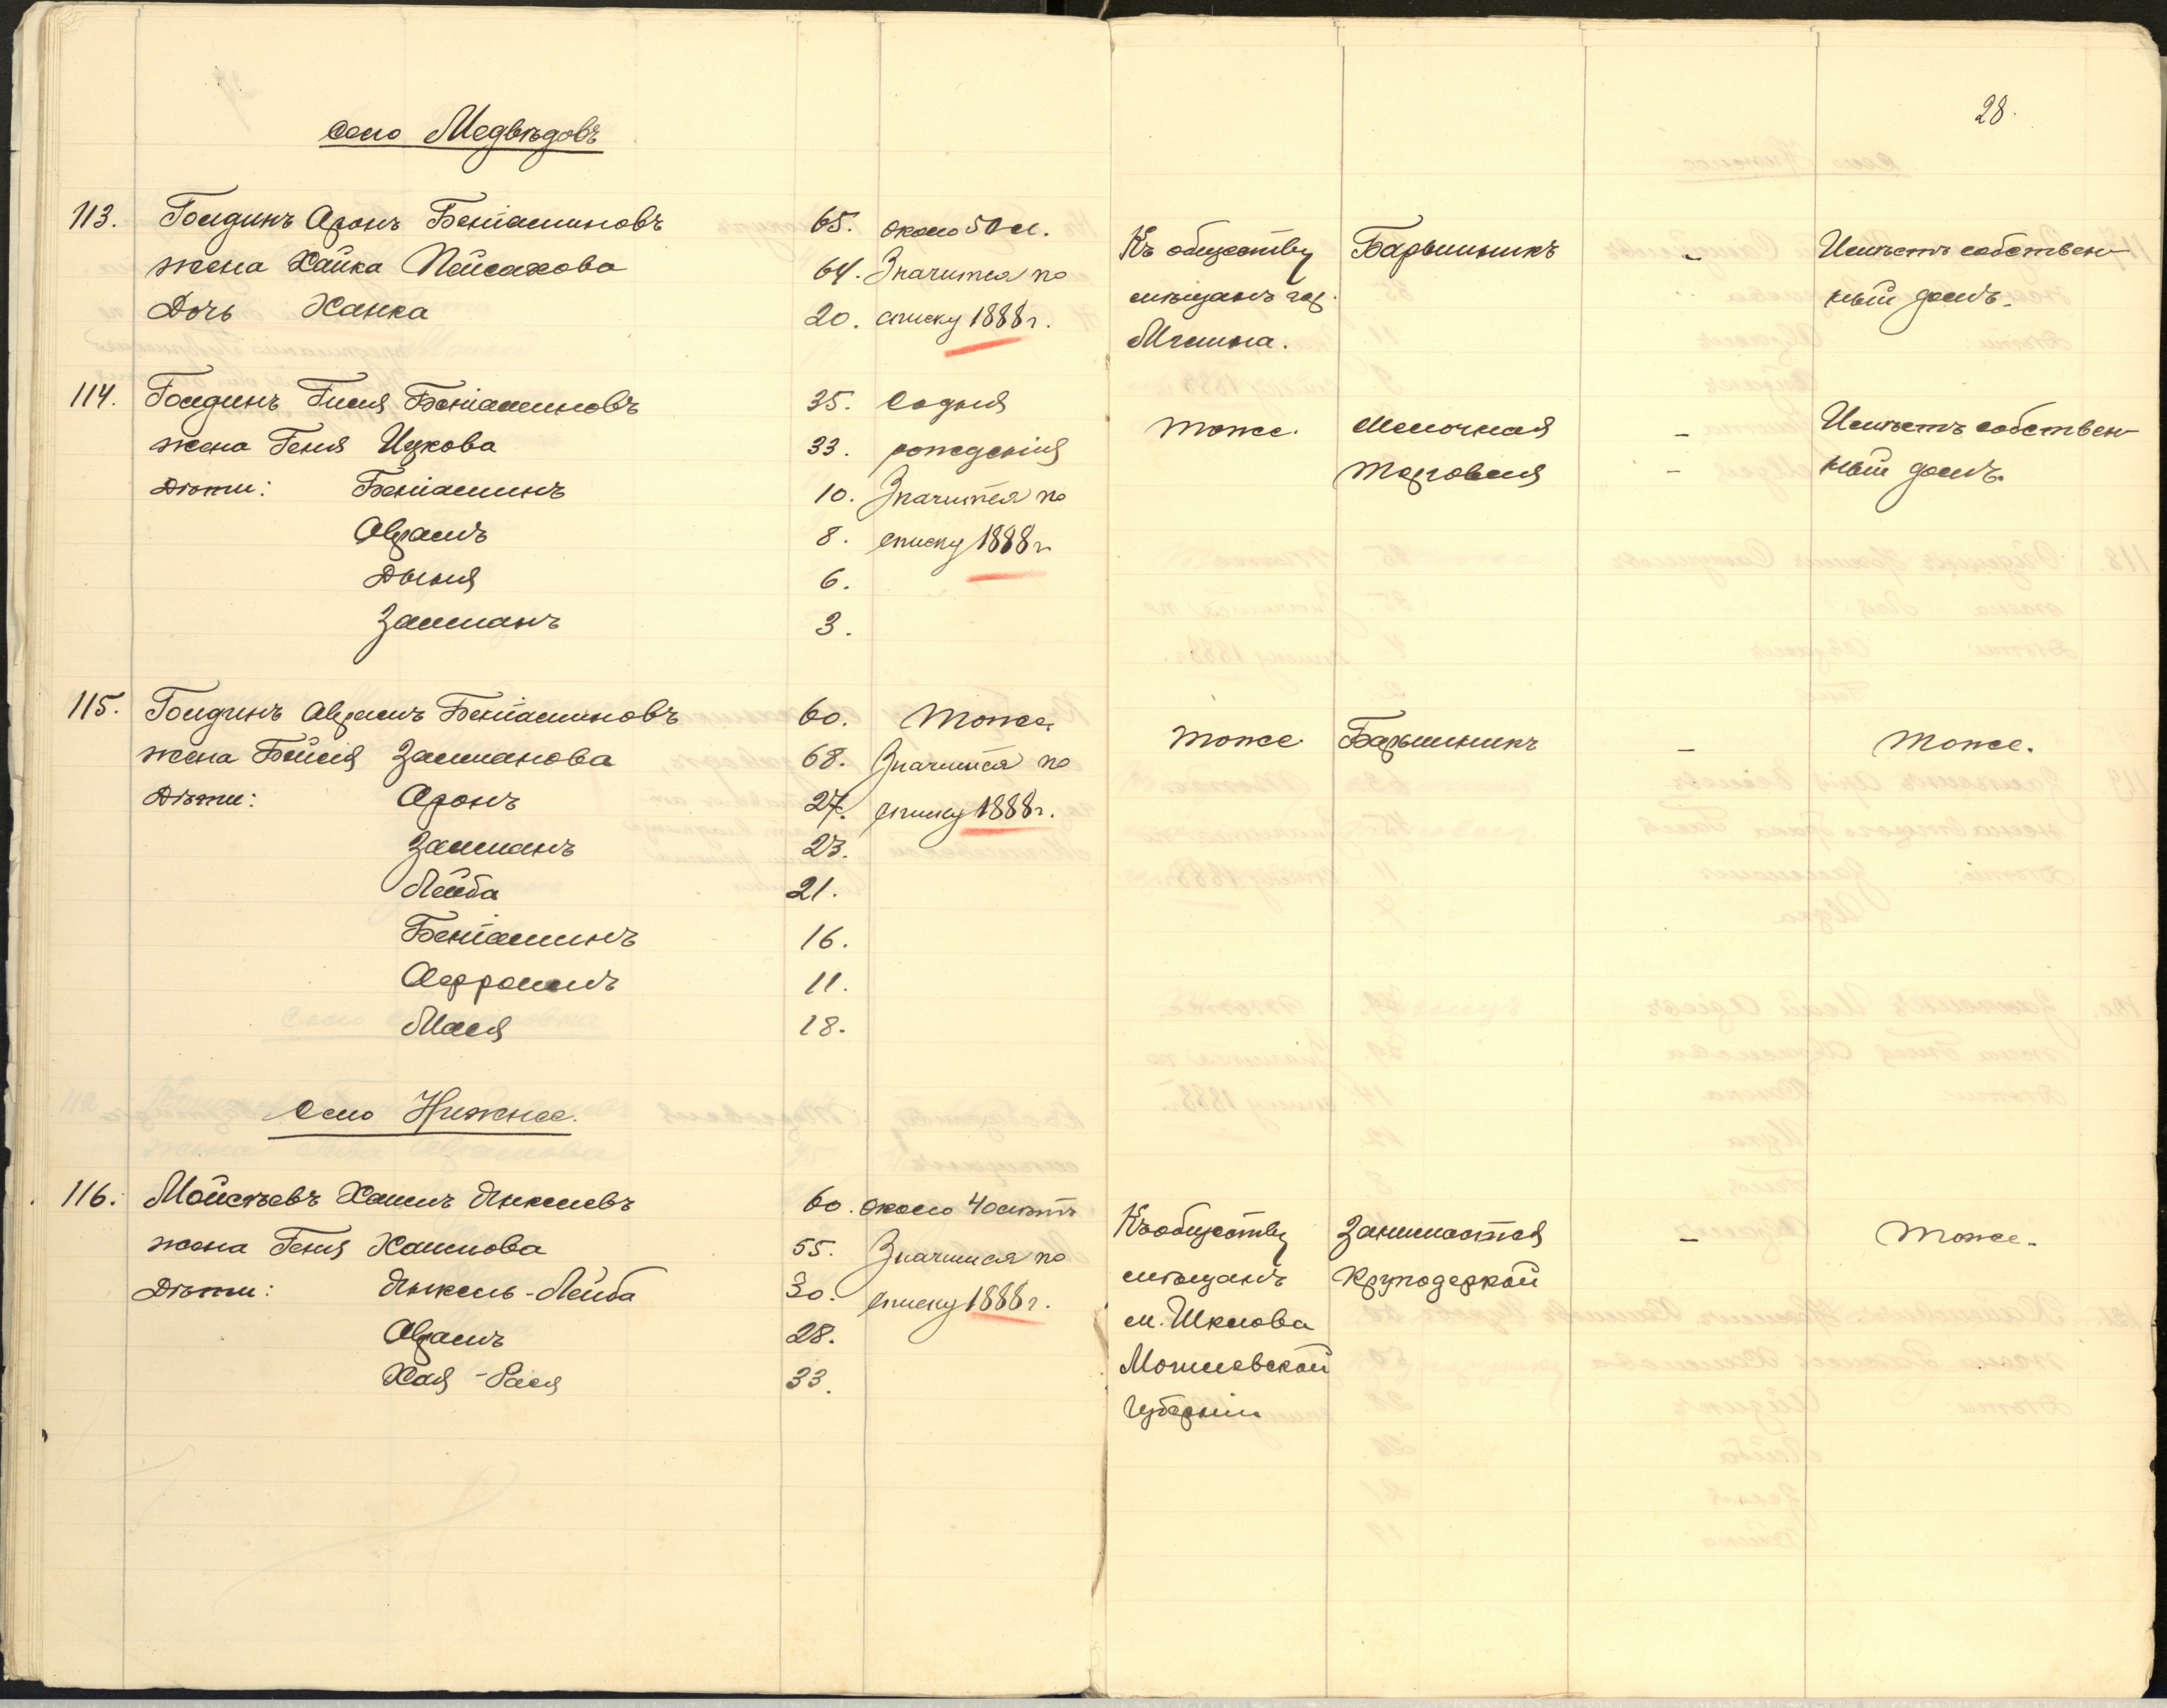 28.
село Медвѣдовъ
113. Голдинъ Аронъ Беніаминовъ 65. около 50 л. Къ обществу Барышникъ - Имѣетъ собствен-
жена Хайка Пейсахова 64. Значится по мѣщанъ гор. ный домъ.
Дочь Ханка 20. списку 1888 г. Мглина.
114. Голдинъ Гиля Беніаминовъ 35. Со дня тоже. мелочная - Имѣетъ собствен-
жена Геня Ицкова 33. рожденія торговля - ный домъ.
Дѣти: Беніаминъ 10. Значится по
Абрамъ 8. списку 1888 г.
Дыня 6.
Залманъ 3.
115. Голдинъ Абрамъ Беніаминовъ 60. тоже. тоже Барышникъ - тоже.
жена Бейля Залманова 68. Значится по
Дѣти: Аронъ 27. списку 1888 г.
Залманъ 23.
Лейба 21.
Беніаминъ 16.
16
Маля 18.
село Нижнее.
116. Мойсѣевъ Хаимъ Янкелевъ 60. около 40 лѣтъ Къ обществу Занимается - тоже.
жена Геня Хаимова 55. Значится по мѣщанъ Круподеркой
Дѣти: Янкель-Лейба 30. списку 1888 г. м. Шклова
Абрамъ 28. Могилевской
Хая-Рася 33. Губерніи